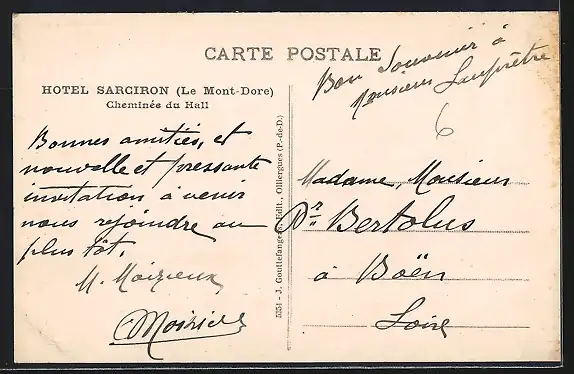 CARTE POSTALE
Bon Souvenir à
Monsieur
6
HOTEL SARCIRON (Le Mont-Dore)
Cheminée du Hall
Bonnes amitiés, et
nouvelle et pressante
invitation à venir
nous rejoindre au
plus tôt.
M. Moizieux
5351 - J. Gouttefangeas, Edit., Olliergues (P.-de-D.)
Madame, Monsieur
Dr Bertolus
à Boën
Loire